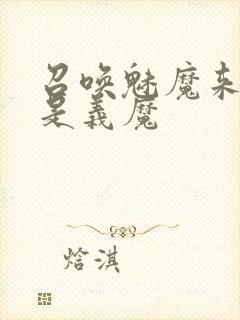 召唤魅魔来
是義魔
焓淇